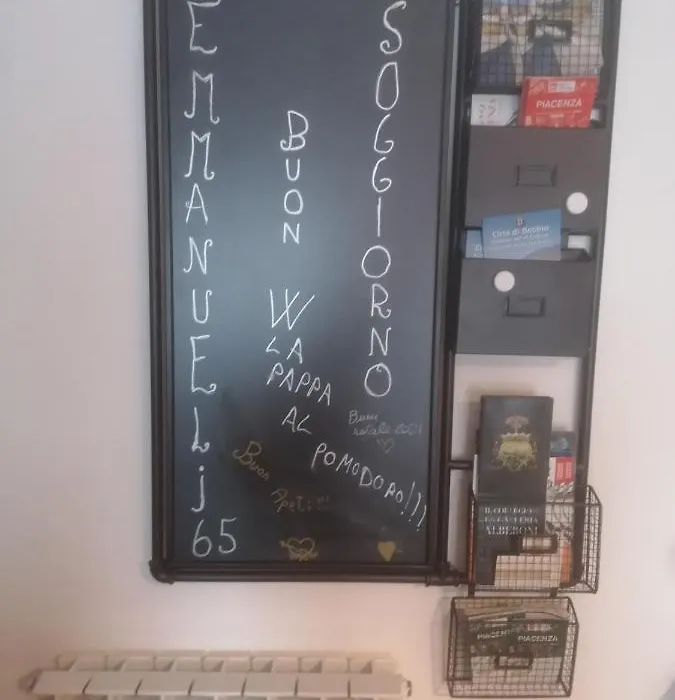 EMMANUELj
65
BUON
SOGGIORNO
W
LA
PAPPA
AL
POMODORO!!!
Buon
natale 2021
Buon
PIACENZA
Città di Bobbio
IL COLLEGIO
ALBERONI
PIACENZA
PIACENZA